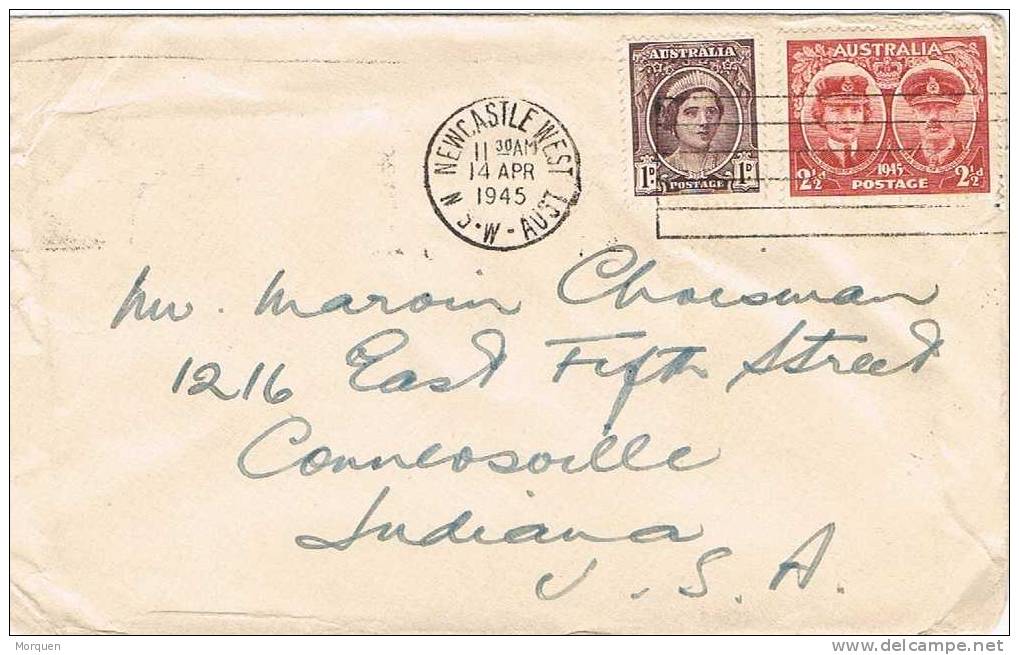 AUSTRALIA
1D 1D
POSTAGE
AUSTRALIA
1945
2½d POSTAGE 2½d
NEWCASTLE WEST
11 30AM
14 APR
1945
N.S.W-AUST
Mr. Marvin Choesman
1216 East Fifth Street
Connersville
Indiana
U.S.A.
Morquen
www.delcampe.net